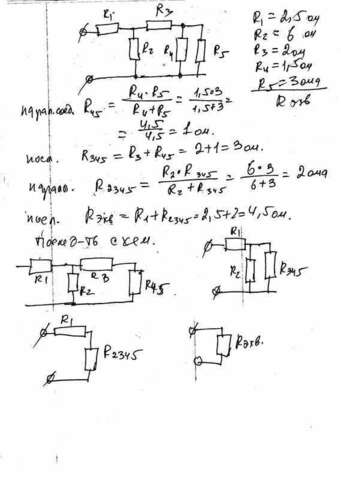 R1 R3
R2 R4 R5
R1 = 2,5 ом
R2 = 6 ом
R3 = 2 ом
R4 = 1,5 ом
R5 = 3 ом
R экв
паралл. соед. R45 = R4·R5 / R4+R5 = 1,5·3 / 1,5+3 =
= 4,5 / 4,5 = 1 ом.
посл. R345 = R3 + R45 = 2+1 = 3 ом.
паралл. R2345 = R2·R345 / R2+R345 = 6·3 / 6+3 = 2 ом
посл. Rэкв = R1 + R2345 = 2,5+2 = 4,5 ом.
Посл-ть схем.
R1 R2 R3 R45
R1 R2 R345
R1 R2345
Rэкв.